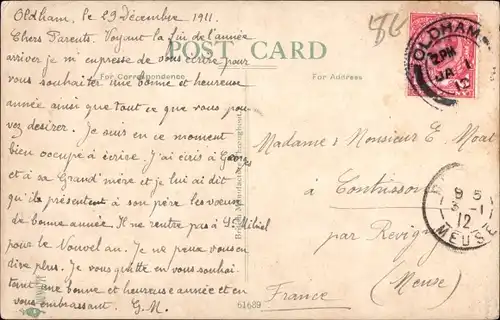 Oldham, le 29 décembre 1911.
Chers Parents. Voyant la fin de l'année
arriver je m'empresse de vous écrire pour
vous souhaiter une bonne et heureuse
année ainsi que tout ce que vous pou-
vez désirer. Je suis en ce moment
bien occupé à écrire. J'ai écris à
et à sa Grand'mère et je lui ai dit
qu'ils présentent à son père les vœux
de bonne année. Il ne rentre pas à St Mihiel
pour le Nouvel an. Je ne peux vous en
dire plus. Je vous quitte en vous souhai-
tant une bonne et heureuse année et en
vous embrassant. G. M.
POST CARD
For Correspondence
For Address
British Manufacture Throughout
61689
86
OLDHAM
2 PM
JA 1
12
Madame & Monsieur E.
à Contrisson
par Revigny
(Meuse)
France
12
MEUSE